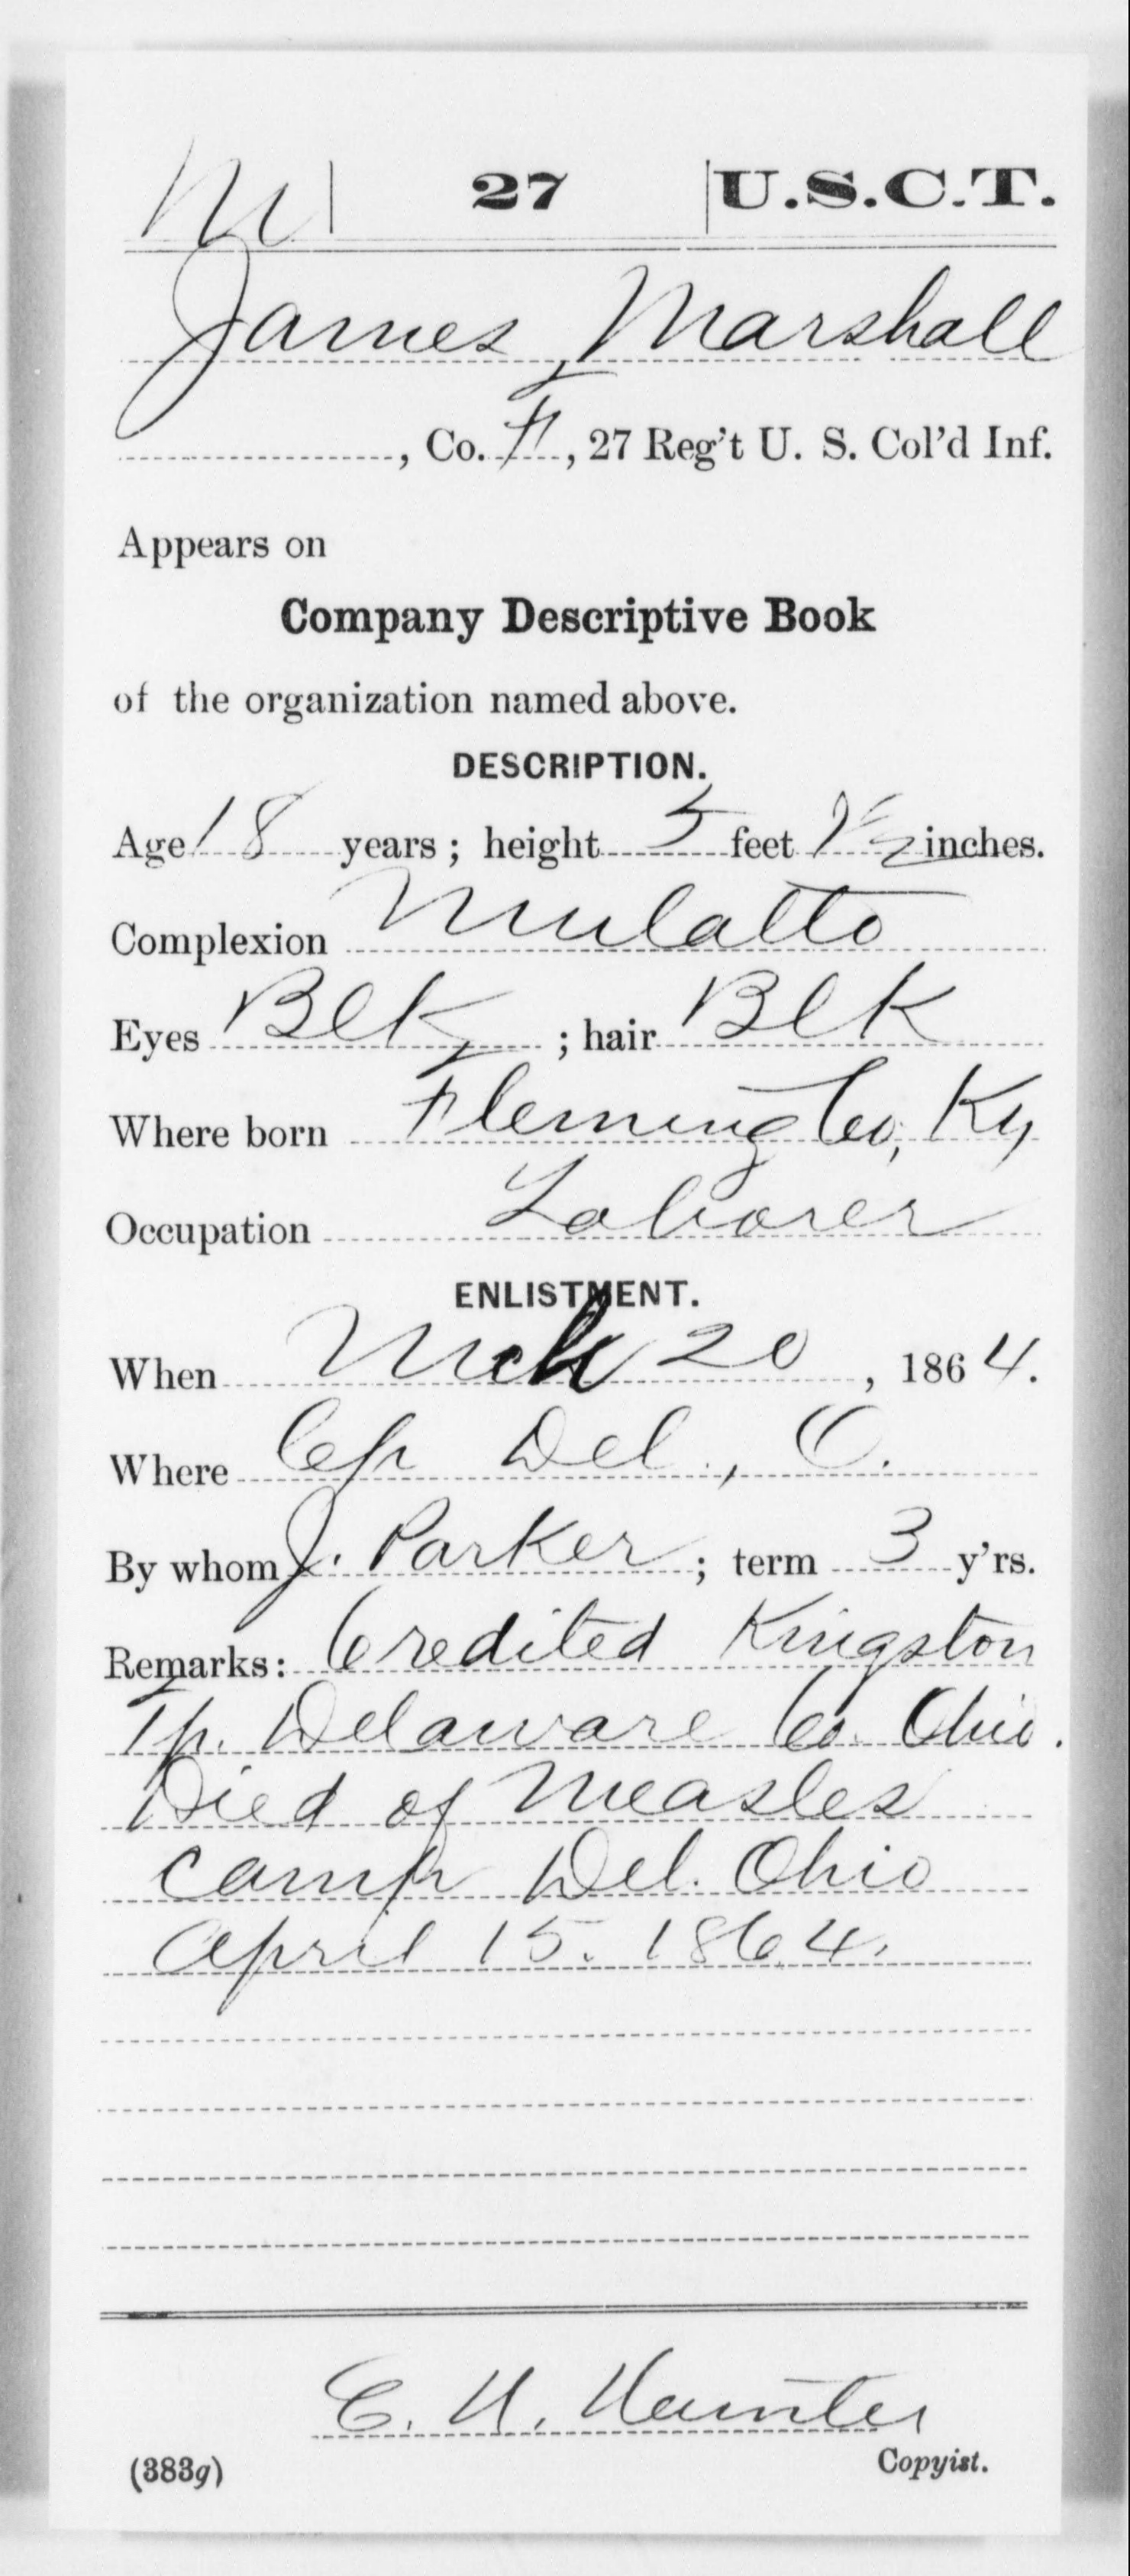 M | 27 | U.S.C.T.
James Marshall
, Co. F, 27 Reg't U. S. Col'd Inf.
Appears on
Company Descriptive Book
of the organization named above.
DESCRIPTION.
Age 18 years; height 5 feet ½ inches.
Complexion Mulatto
Eyes Blk; hair Blk
Where born Fleming Co, Ky
Occupation Laborer
ENLISTMENT.
When Mch 20, 1864.
Where Cp Del., O.
By whom J. Parker; term 3 y'rs.
Remarks: Credited Kingston
Tp. Delaware Co. Ohio.
Died of Measles
Camp Del. Ohio
April 15. 1864.
C. H.
(383g) Copyist.